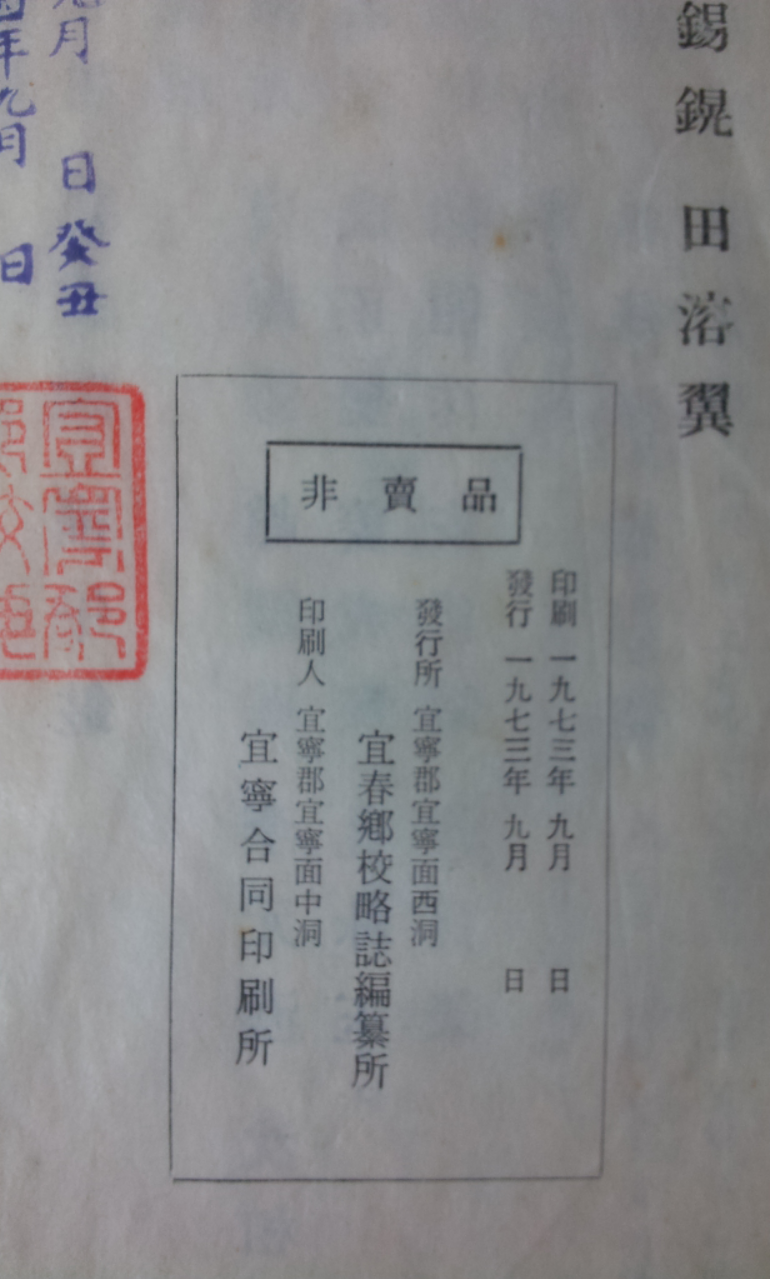 錫鎤 田溶翼
非賣品
印刷 一九七三年 九月 日
發行 一九七三年 九月 日
發行所 宜寧郡宜寧面西洞
宜春鄕校略誌編纂所
印刷人 宜寧郡宜寧面中洞
宜寧合同印刷所
月 日癸丑
年九月 日
宜寧鄕
校